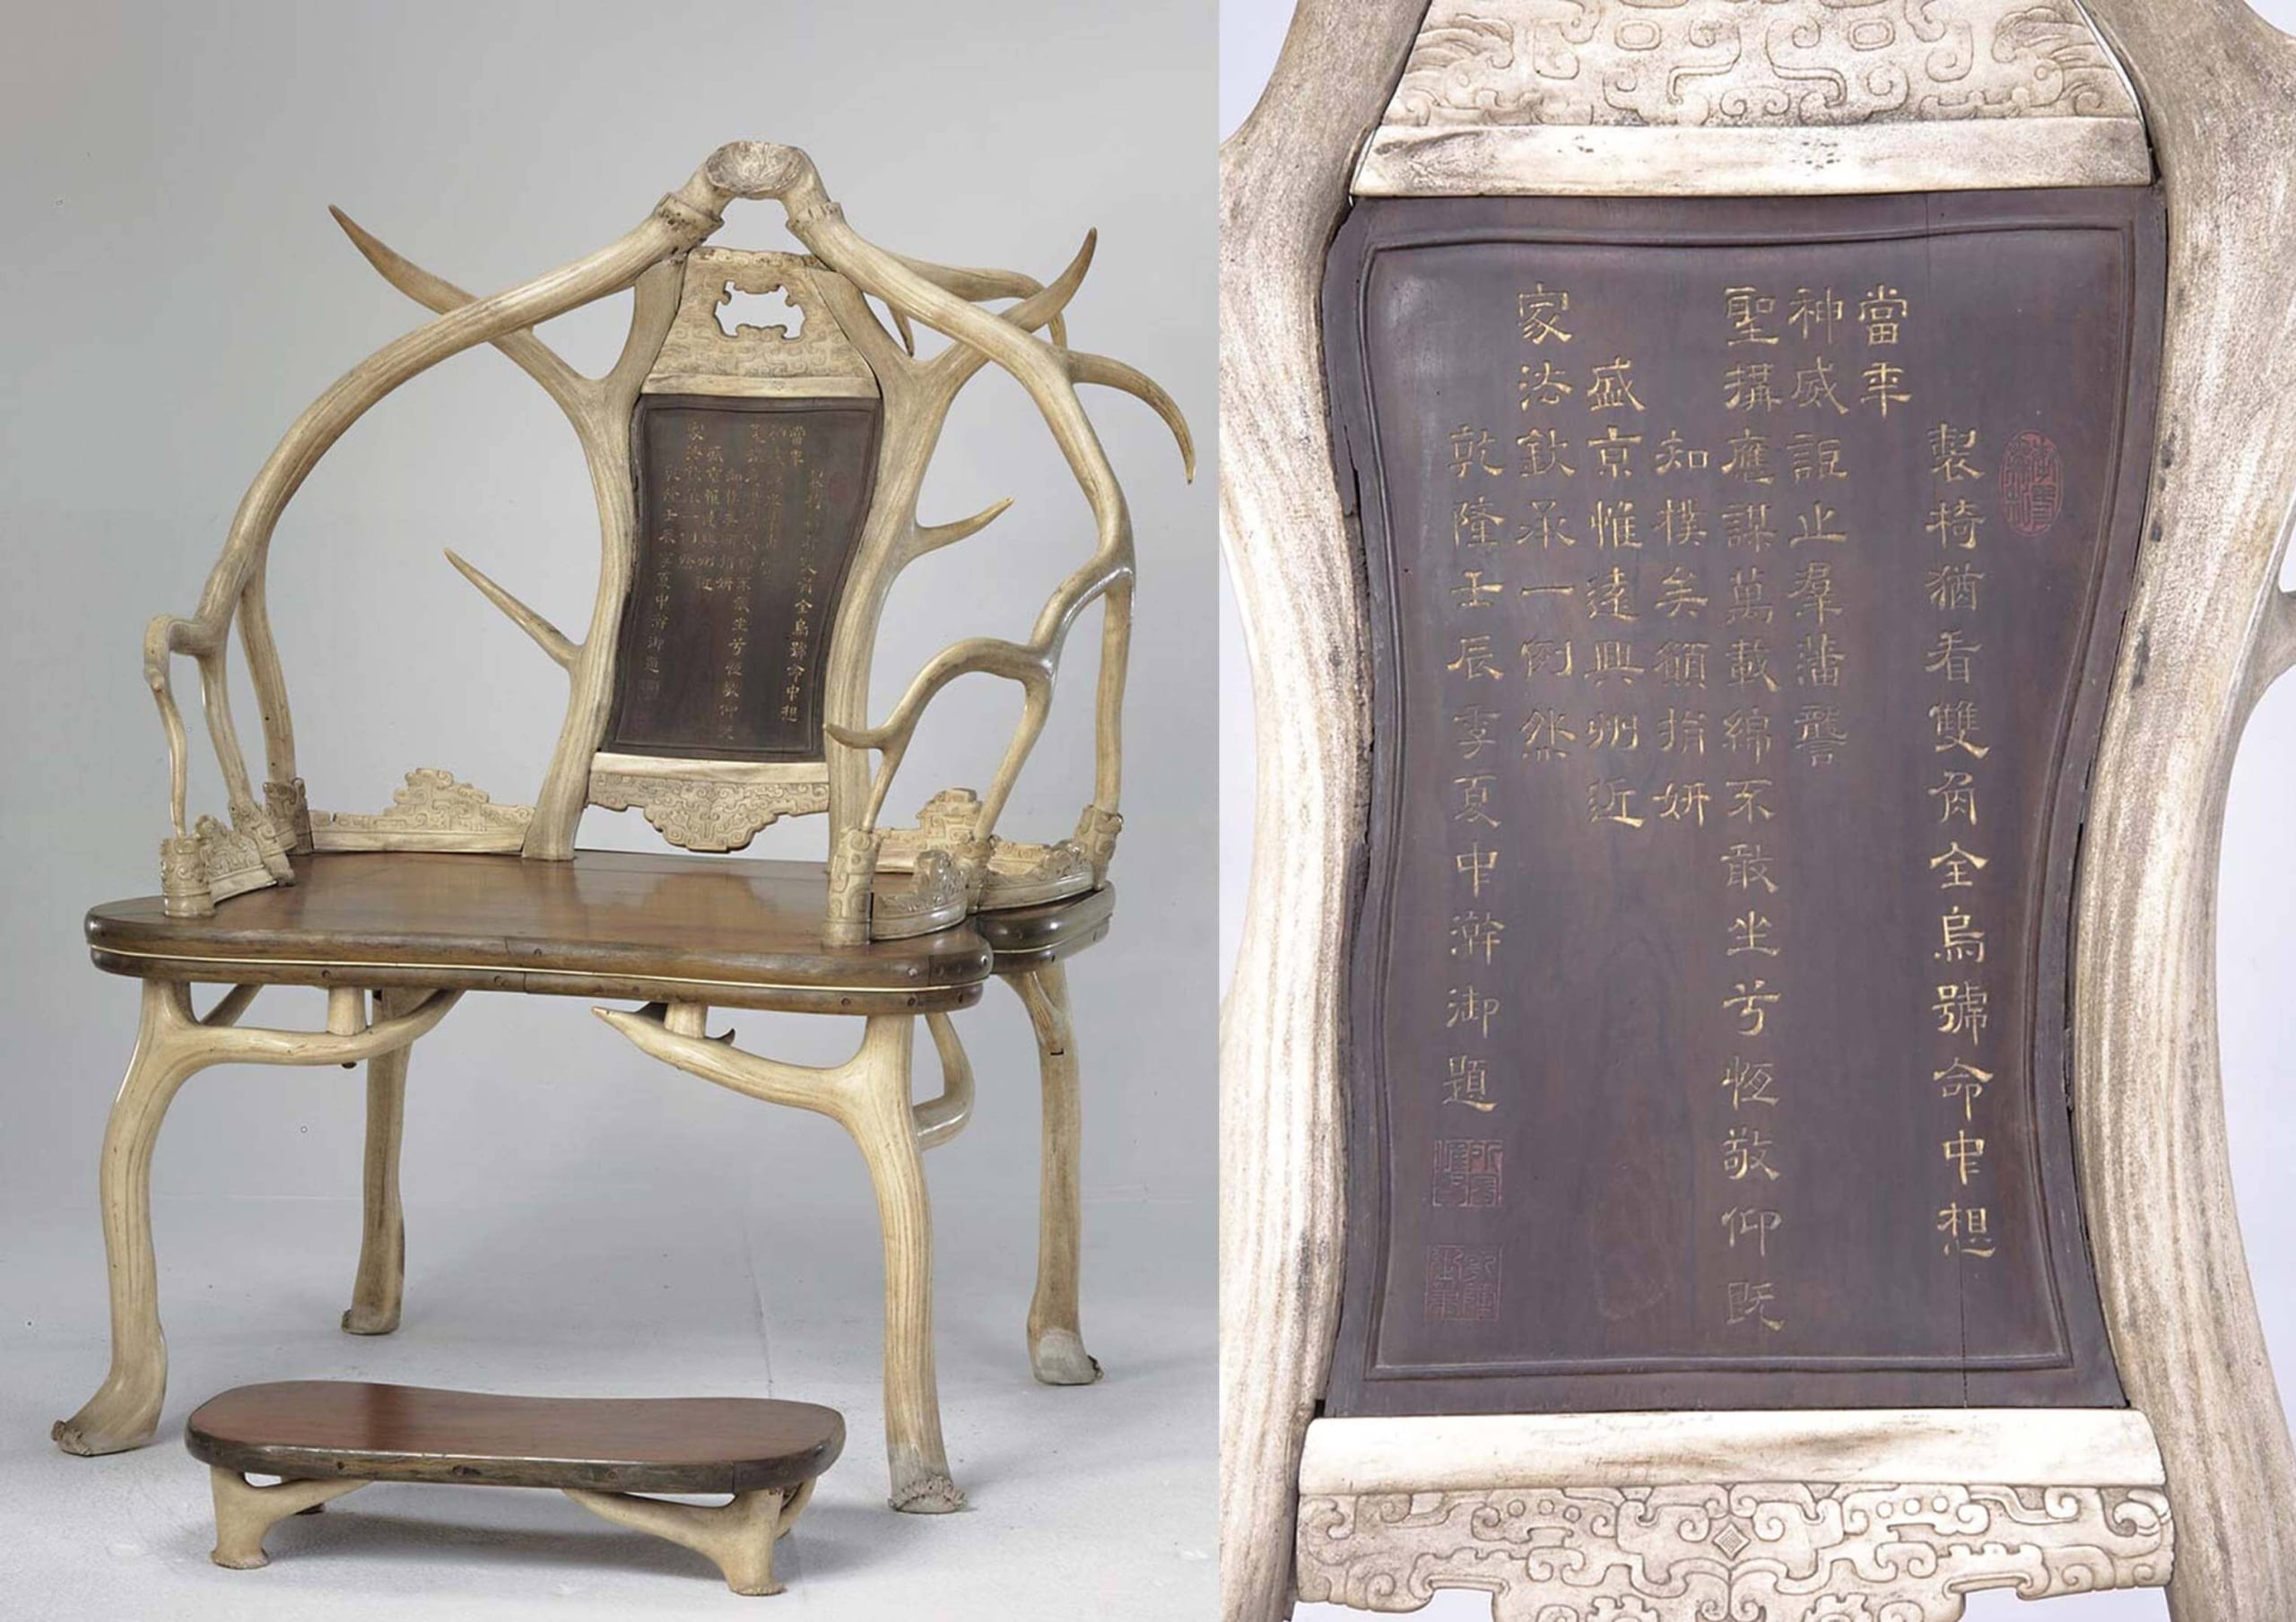 製椅猶看雙角全烏號命中想
當年
神威詎止羣藩讋
聖搆應謀萬載綿不敢坐兮恆敬仰既
知樸矣願捐妍
盛京惟遠興州近
家法欽承一例然
乾隆壬辰季夏中澣御題